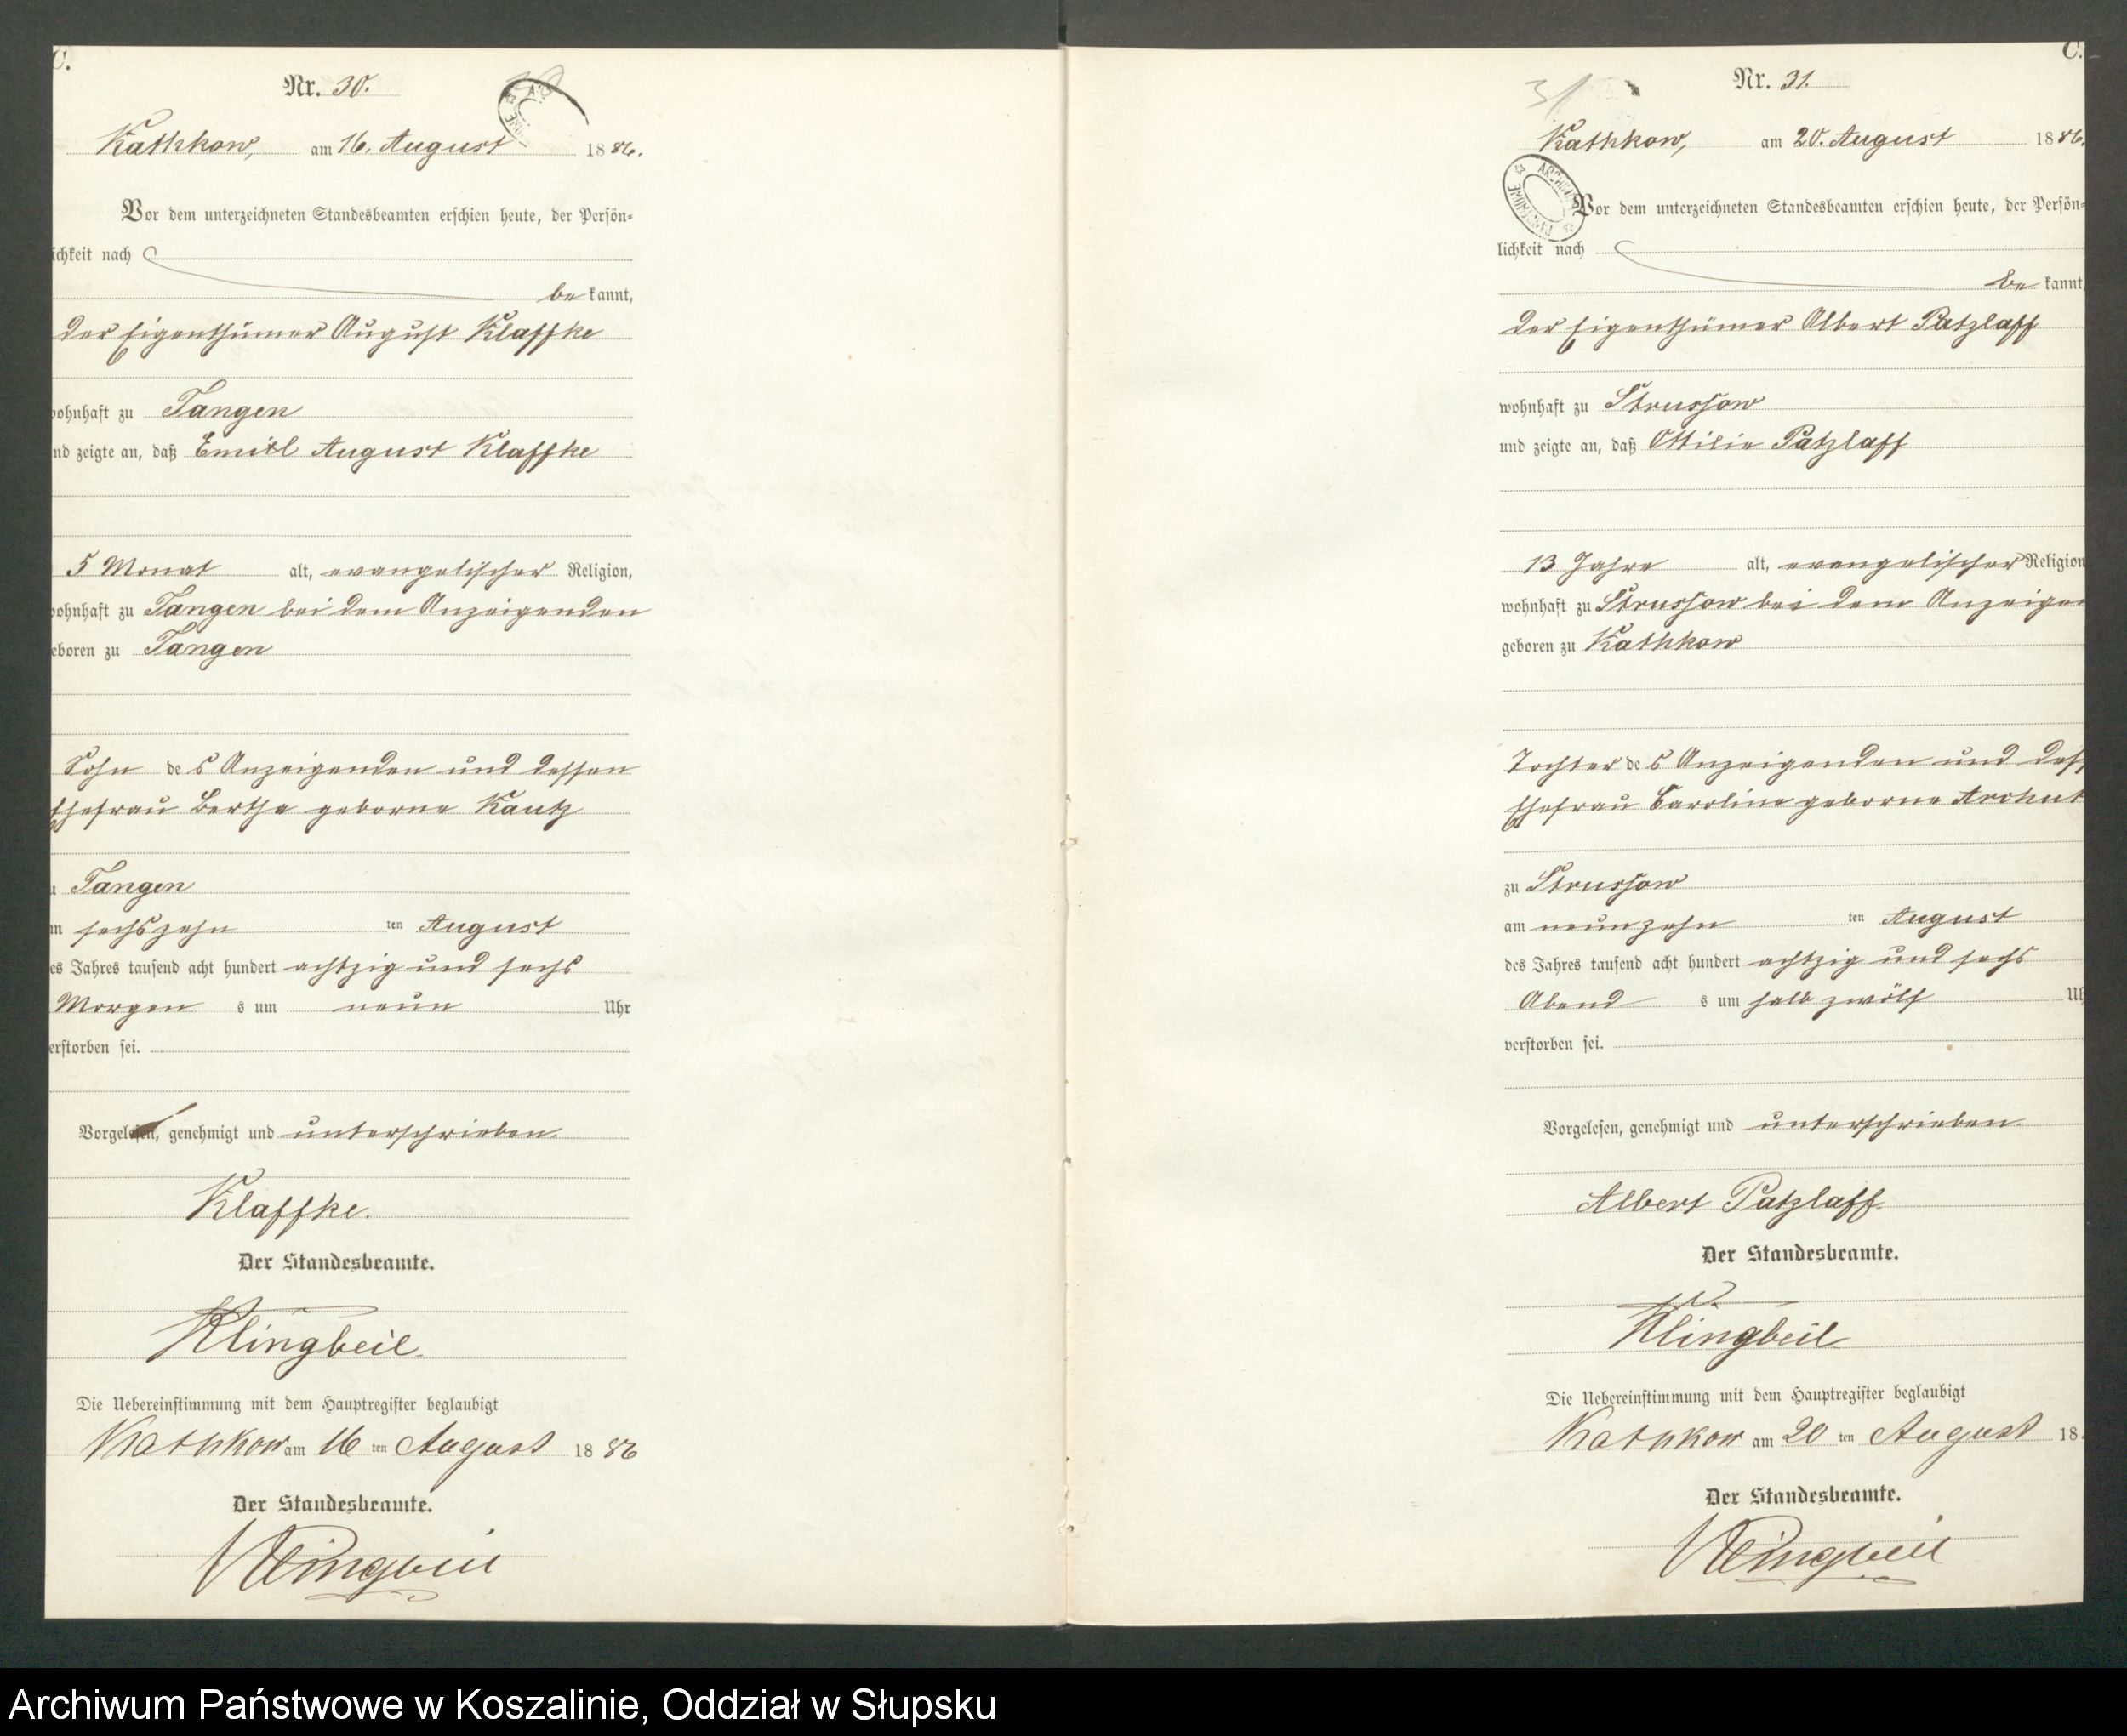 C.
Nr. 30.
Kathkow, am 16. August 1886.
Vor dem unterzeichneten Standesbeamten erschien heute, der Persön-
ichkeit nach
be kannt,
der Eigenthümer August Klaffke
ohnhaft zu Tangen
nd zeigte an, daß Emil August Klaffke
5 Monat alt, evangelischer Religion,
ohnhaft zu Tangen bei dem Anzeigenden
eboren zu Tangen
Sohn des Anzeigenden und dessen
Ehefrau Bertha geborne Kautz
u Tangen
m sechszehn ten August
es Jahres tausend acht hundert achtzig und sechs
Morgen s um neun Uhr
erstorben sei.
Vorgelesen, genehmigt und unterschrieben.
Klaffke.
Der Standesbeamte.
Klingbeil.
Die Uebereinstimmung mit dem Hauptregister beglaubigt
Kathkow am 16 ten August 1886
Der Standesbeamte.
Klingbeil
C.
31
Nr. 31.
Kathkow, am 20. August 1886.
Vor dem unterzeichneten Standesbeamten erschien heute, der Persön-
lichkeit nach
be kannt,
der Eigenthümer Albert Patzlaff
wohnhaft zu Strussow
und zeigte an, daß Ottilie Patzlaff
13 Jahre alt, evangelischer Religion
wohnhaft zu Strussow bei dem Anzeigen
geboren zu Kathkow
Tochter des Anzeigenden und dess
Ehefrau Caroline geborne Archut
zu Strussow
am neunzehn ten August
des Jahres tausend acht hundert achtzig und sechs
Abend s um halb zwölf Uh
verstorben sei.
Vorgelesen, genehmigt und unterschrieben.
Albert Patzlaff.
Der Standesbeamte.
Klingbeil
Die Uebereinstimmung mit dem Hauptregister beglaubigt
Kathkow am 20 ten August 18
Der Standesbeamte.
Klingbeil
Archiwum Państwowe w Koszalinie, Oddział w Słupsku